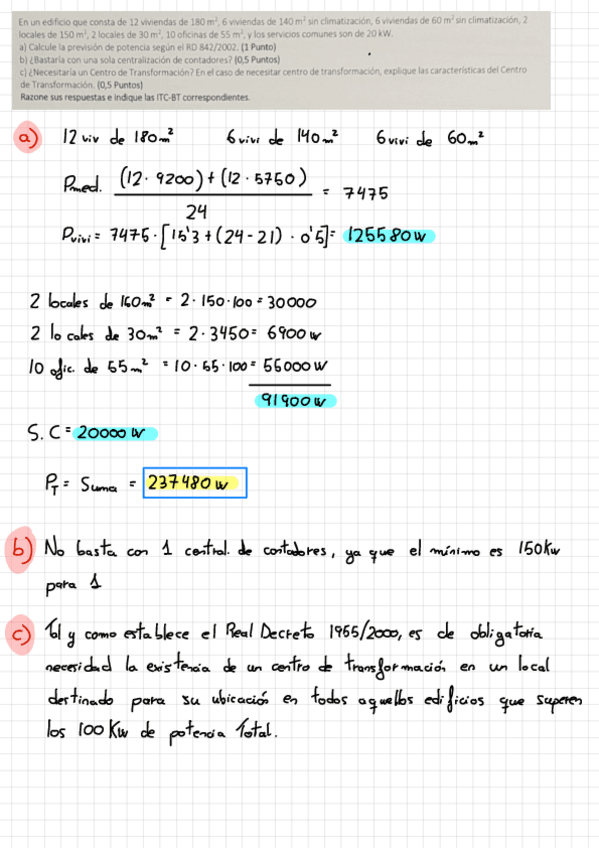 En un edificio que consta de 12 viviendas de 180 m², 6 viviendas de 140 m² sin climatización, 6 viviendas de 60 m² sin climatización, 2
locales de 150 m², 2 locales de 30 m², 10 oficinas de 55 m², y los servicios comunes son de 20 kW.
a) Calcule la previsión de potencia según el RD 842/2002. (1 Punto)
b) ¿Bastaría con una sola centralización de contadores? (0,5 Puntos)
c) ¿Necesitaría un Centro de Transformación? En el caso de necesitar centro de transformación, explique las características del Centro
de Transformación. (0,5 Puntos)
Razone sus respuestas e indique las ITC-BT correspondientes.
a) 12 viv de 180m² 6 vivi de 140m² 6 vivi de 60m²
Pmed. (12·9200)+(12·5750) / 24 = 7475
Pvivi = 7475·[15'3+(24-21)·0'5]= 125580w
2 locales de 160m² = 2·150·100 = 30000
2 locales de 30m² = 2·3450= 6900w
10 ofic. de 55m² = 10·55·100= 55000w
91900w
S.C = 20000w
PT = Suma = 237480w
b) No basta con 1 central. de contadores, ya que el mínimo es 150Kw
para 1
c) Tal y como establece el Real Decreto 1955/2000, es de obligatoria
necesidad la existencia de un centro de transformación en un local
destinado para su ubicación en todos aquellos edificios que superen
los 100 Kw de potencia Total.